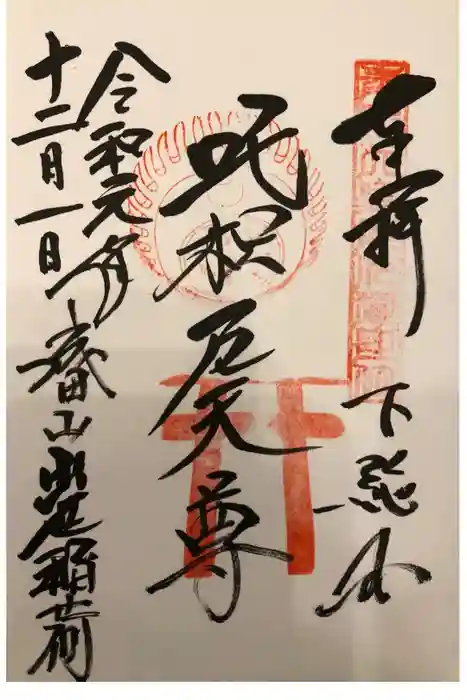 奉拝 下総
吒枳尼天尊
令和元年
十二月一日
成田山出世稲荷